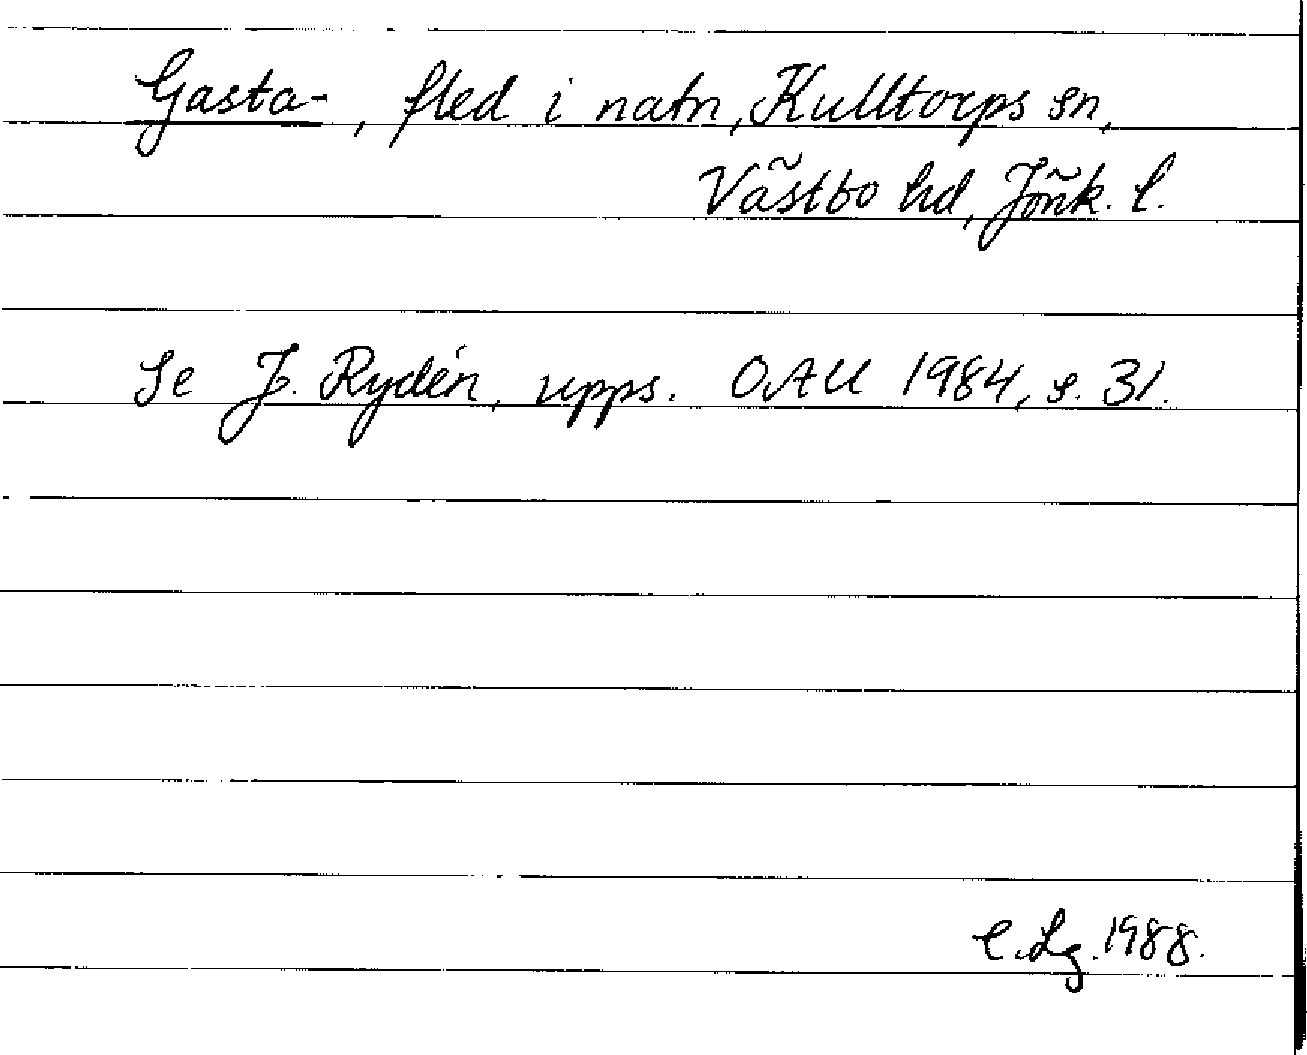 Gasta-, fled i natn, Kulltorps sn,
Västbo hd, Jönk. l.
Se J. Rydén, upps. OAU 1984, s. 31.
C. Lg. 1988.